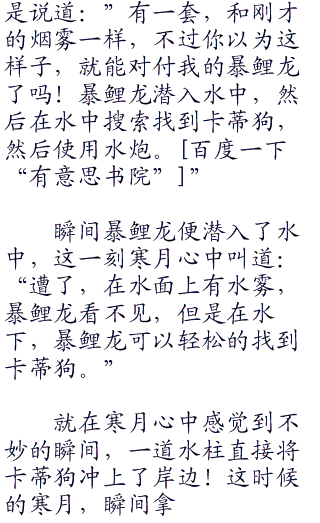 是说道：”有一套，和刚才
的烟雾一样，不过你以为这
样子，就能对付我的暴鲤龙
了吗！暴鲤龙潜入水中，然
后在水中搜索找到卡蒂狗，
然后使用水炮。[百度一下
“有意思书院”]”
瞬间暴鲤龙便潜入了水
中，这一刻寒月心中叫道：
“遭了，在水面上有水雾，
暴鲤龙看不见，但是在水
下，暴鲤龙可以轻松的找到
卡蒂狗。”
就在寒月心中感觉到不
妙的瞬间，一道水柱直接将
卡蒂狗冲上了岸边！这时候
的寒月，瞬间拿